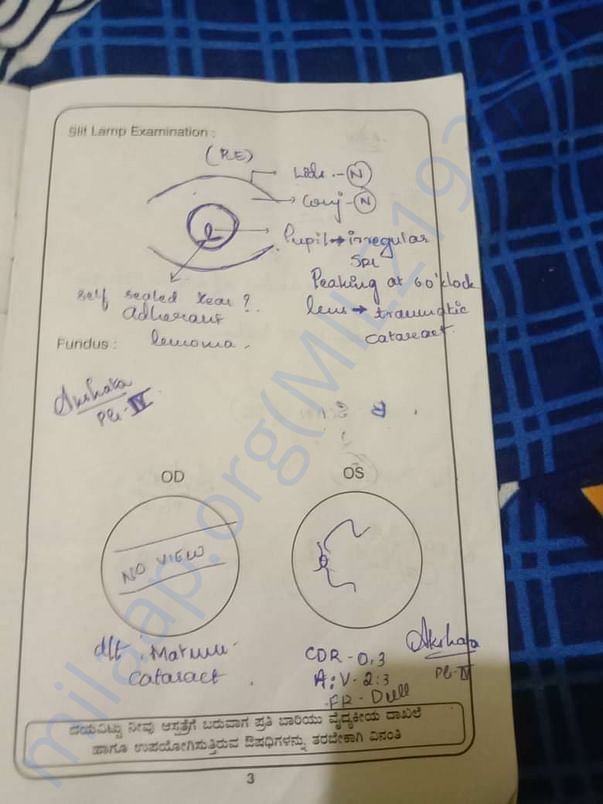 Slit Lamp Examination :
(RE)
Lids - N
Conj - N
Pupil → irregular
Peaking at 6 o'clock
lens → traumatic
cataract
self sealed tear ?
adherant
lemoma.
Fundus :
Akshata
PG-IV
OD
OS
NO VIEW
d/t Mature
Cataract
CDR - 0.3
A:V - 2:3
FR - Dull
Akshata
PG-IV
ದಯವಿಟ್ಟು ನೀವು ಆಸ್ಪತ್ರೆಗೆ ಬರುವಾಗ ಪ್ರತಿ ಬಾರಿಯು ವೈದ್ಯಕೀಯ ದಾಖಲೆ
ಹಾಗೂ ಉಪಯೋಗಿಸುತ್ತಿರುವ ಔಷಧಿಗಳನ್ನು ತರಬೇಕಾಗಿ ವಿನಂತಿ
3
milaap.org(MIL219